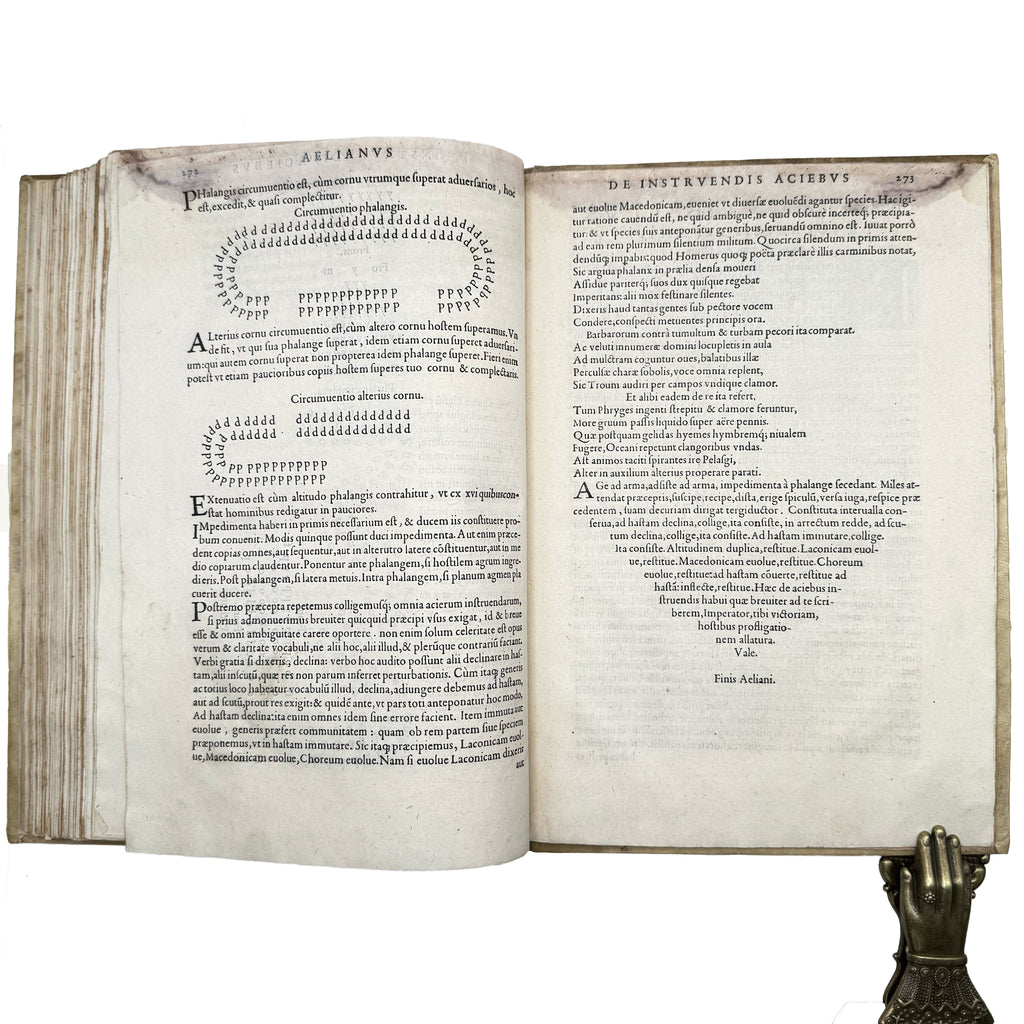 272
AELIANVS
PHalangis circumuentio est, cùm cornu vtrumque superat aduersarios, hoc
est, excedit, & quasi complectitur.
Circumuentio phalangis.
P P P P P P P P P P P P P P P P P P P
P P P P P P P P P P P P P P P P P P P
ALterius cornu circumuentio est, cùm altero cornu hostem superamus. Vn
de fit, vt qui sua phalange superat, idem etiam cornu superet aduersari-
um: qui autem cornu superat non propterea idem phalange superet. Fieri enim
potest vt etiam paucioribus copiis hostem superes tuo cornu & complectaris.
Circumuentio alterius cornu.
d d d d d d d d d d d d d d d d d
d d d d d d d d d d d d d d d d d
P P P P P P P P P P P P
P P P P P P P P P P P P
EXtenuatio est cùm altitudo phalangis contrahitur, vt cx xvi quibus con-
stat hominibus redigatur in pauciores.
IMpedimenta haberi in primis necessarium est, & ducem iis constituere pro-
bum conuenit. Modis quinque possunt duci impedimenta. Aut enim præce-
dent copias omnes, aut sequentur, aut in alterutro latere cōstituentur, aut in me
dio copiarum claudentur. Ponentur ante phalangem, si hostilem agrum ingre-
dieris. Post phalangem, si latera metuis. Intra phalangem, si planum agmen pla
cuerit ducere.
POstremo præcepta repetemus colligemusq; omnia acierum instruendarum,
si prius admonuerimus breuiter quicquid præcipi vsus exigat, id & breue
esse & omni ambiguitate carere oportere. non enim solum celeritate est opus
verum & claritate vocabuli, ne alii hoc, alii illud, & plerūque contrariū faciant.
Verbi gratia si dixeris, declina: verbo hoc audito possunt alii declinare in has-
tam, alii in scutū, quæ rēs non parum inferret perturbationis. Cùm itaq; generis
ac totius loco habeatur vocabulū illud, declina, adiungere debemus ad hastam,
aut ad scutū, prout res exigit: & quidē ante, vt pars toti anteponatur hoc modo,
Ad hastam declina: ita enim omnes idem sine errore facient. Item immuta aut
euolue, generis præfert communitatem: quam ob rem partem siue speciem
præponemus, vt in hastam immutare. Sic itaq; præcipiemus, Laconicam euol-
ue, Macedonicam euolue, Choreum euolue. Nam si euolue Laconicam dixeris
aut
DE INSTRVENDIS ACIEBVS
273
aut euolue Macedonicam, eueniet vt diuersæ euoluēdi agantur species. Hac igi-
tur ratione cauendū est, ne quid ambiguè, ne quid obscurè incertéq; præcipia-
tur: & vt species suis anteponatur generibus, seruandū omnino est. Iuuat porrò
ad eam rem plurimum silentium militum. Quocirca silendum in primis atten-
dendūq; impabis: quod Homerus quoq; poëta præclarè illis carminibus notat,
Sic argiua phalanx in prælia densa moueri
Assidue pariterq; suos dux quisque regebat
Imperitans: alii mox festinare silentes.
Dixeris haud tantas gentes sub pectore vocem
Condere, conspecti metuentes principis ora.
Barbarorum contrà tumultum & turbam pecori ita comparat.
Ac veluti innumeræ domini locupletis in aula
Ad mulctram coguntur oues, balatibus illæ
Perculsæ charæ sobolis, voce omnia replent,
Sic Troum audiri per campos vndique clamor.
Et alibi eadem de re ita refert,
Tum Phryges ingenti strepitu & clamore feruntur,
More gruum passis liquido super aëre pennis.
Quæ postquam gelidas hyemes hymbremq; niualem
Fugere, Oceani repetunt clangoribus vndas.
Ast animos taciti spirantes ire Pelasgi,
Alter in auxilium alterius properare parati.
AGe ad arma, adsiste ad arma, impedimenta à phalange secedant. Miles at-
tendat præceptis, suscipe, recipe, dista, erige spiculū, versa iuga, respice præ
cedentem, suam decuriam dirigat tergiductor. Constituta interualla con-
serua, ad hastam declina, collige, ita consiste, in arrectum redde, ad scu-
tum declina, collige, ita consiste. Ad hastam immutare, collige.
Ita consiste. Altitudinem duplica, restitue. Laconicam euol-
ue, restitue. Macedonicam euolue, restitue. Choreum
euolue, restitue: ad hastam cōuerte, restitue ad
hastā: inflecte, restitue. Hæc de aciebus in-
struendis habui quæ breuiter ad te scri-
berem, Imperator, tibi victoriam,
hostibus profligatio-
nem allatura.
Vale.
Finis Aeliani.